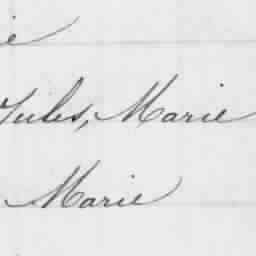 e
Jules, Marie
Marie